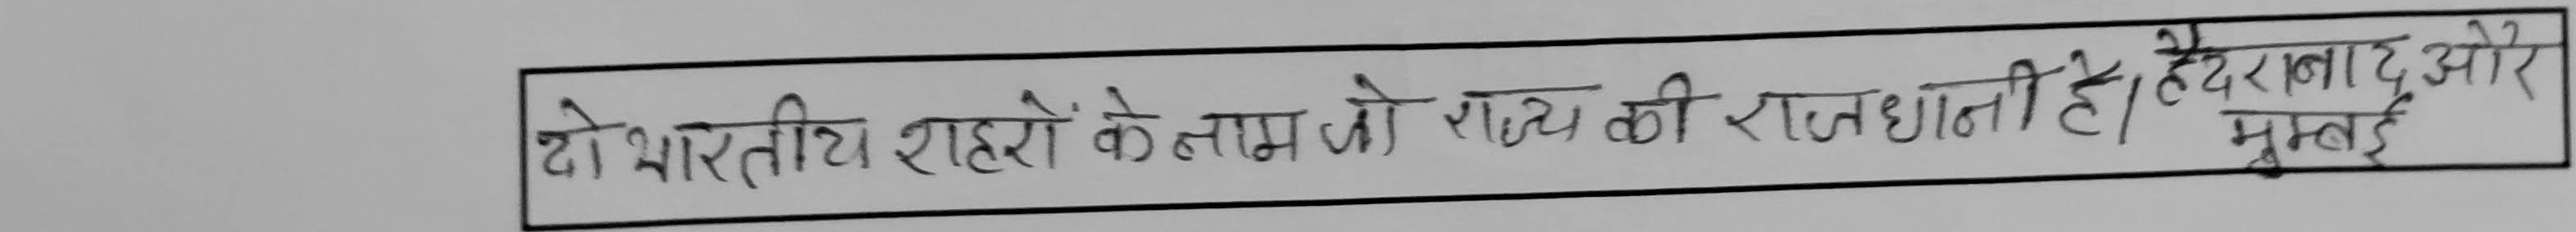 दो भारतीय शहरों के नाम जो राज्य की राजधानी है। हैदराबाद और
मुम्बई